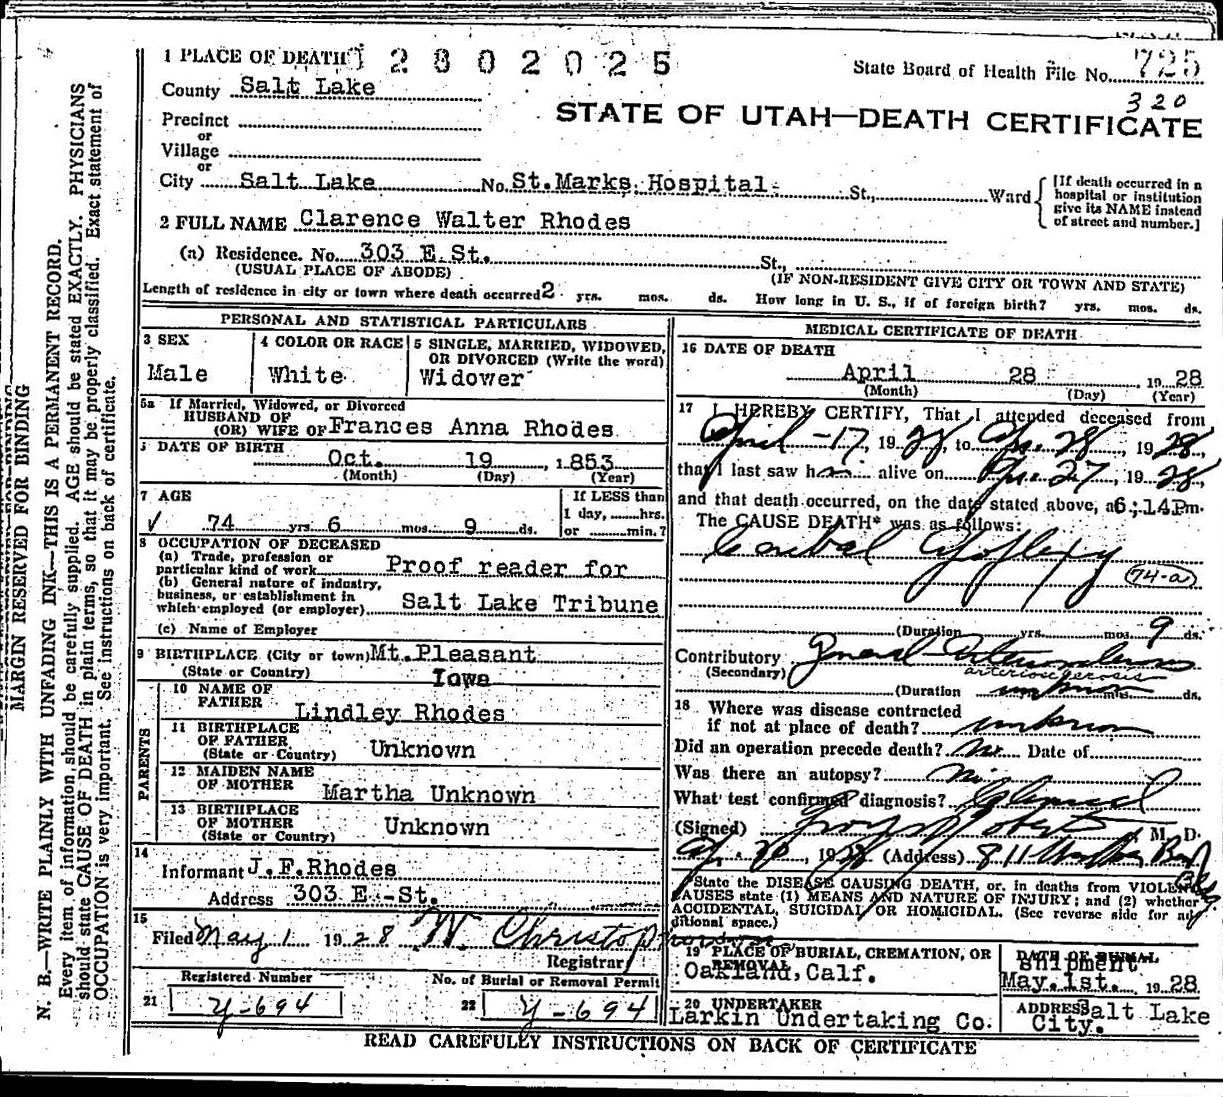 1 PLACE OF DEATH 2802025
State Board of Health File No. 725
County Salt Lake
320
STATE OF UTAH—DEATH CERTIFICATE
Precinct
or
Village
or
City Salt Lake No. St.Marks Hospital St., Ward
[If death occurred in a hospital or institution give its NAME instead of street and number.]
2 FULL NAME Clarence Walter Rhodes
(a) Residence. No. 303 E St. St.,
(USUAL PLACE OF ABODE) (IF NON-RESIDENT GIVE CITY OR TOWN AND STATE)
Length of residence in city or town where death occurred 2 yrs. mos. ds. How long in U. S., if of foreign birth? yrs. mos. ds.
PERSONAL AND STATISTICAL PARTICULARS
3 SEX
Male
4 COLOR OR RACE
White
5 SINGLE, MARRIED, WIDOWED,
OR DIVORCED (Write the word)
Widower
5a If Married, Widowed, or Divorced
HUSBAND OF
(OR) WIFE OF Frances Anna Rhodes
DATE OF BIRTH
Oct. 19, 1853
(Month) (Day) (Year)
7 AGE
74 yrs 6 mos. 9 ds.
If LESS than
1 day, hrs.
or min.?
8 OCCUPATION OF DECEASED
(a) Trade, profession or
particular kind of work Proof reader for
(b) General nature of industry,
business, or establishment in
which employed (or employer) Salt Lake Tribune
(c) Name of Employer
9 BIRTHPLACE (City or town) Mt.Pleasant
(State or Country) Iowa
PARENTS
10 NAME OF
FATHER Lindley Rhodes
11 BIRTHPLACE
OF FATHER
(State or Country) Unknown
12 MAIDEN NAME
OF MOTHER Martha Unknown
13 BIRTHPLACE
OF MOTHER
(State or Country) Unknown
14
Informant J.F.Rhodes
Address 303 E.-St.
15
Filed May 1 1928 W. Christop
Registrar
Registered Number
21 Y-694
No. of Burial or Removal Permit
22 Y-694
MEDICAL CERTIFICATE OF DEATH
16 DATE OF DEATH
April 28, 1928
(Month) (Day) (Year)
17 I HEREBY CERTIFY, That I attended deceased from
April-17, 1928, to Apr. 28, 1928,
that I last saw him alive on Apr. 27, 1928,
and that death occurred, on the date stated above, at 6:14Pm.
The CAUSE DEATH* was as follows:
Cerebral Apoplexy
74-a
(Duration yrs. mos. 9 ds.
Contributory General Arteriosclerosis
(Secondary) arteriosclerosis
(Duration unknown mos. ds.
18 Where was disease contracted
if not at place of death? unknown
Did an operation precede death? No Date of
Was there an autopsy? No
What test confirmed diagnosis? Clinical
(Signed) M. D.
1928 (Address) 811 Walker Bank Bldg.
*State the DISEASE CAUSING DEATH, or, in deaths from VIOLENT
CAUSES state (1) MEANS AND NATURE OF INJURY; and (2) whether
ACCIDENTAL, SUICIDAL, OR HOMICIDAL. (See reverse side for ad
ditional space.)
19 PLACE OF BURIAL, CREMATION, OR
REMOVAL
Oakland, Calf.
DATE OF BURIAL
Shipment
May.1st. 1928
20 UNDERTAKER
Larkin Undertaking Co.
ADDRESS Salt Lake
City.
READ CAREFULLY INSTRUCTIONS ON BACK OF CERTIFICATE
MARGIN RESERVED FOR BINDING
N. B.—WRITE PLAINLY WITH UNFADING INK—THIS IS A PERMANENT RECORD.
Every item of information should be carefully supplied. AGE should be stated EXACTLY. PHYSICIANS
should state CAUSE OF DEATH in plain terms, so that it may be properly classified. Exact statement of
OCCUPATION is very important. See instructions on back of certificate.